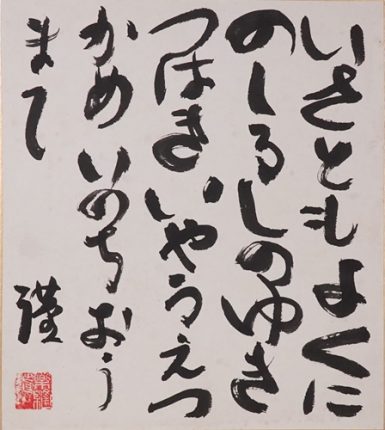 いさともよくに
のしるしのゆき
つはきいやうえつ
かめいのちおう
まて